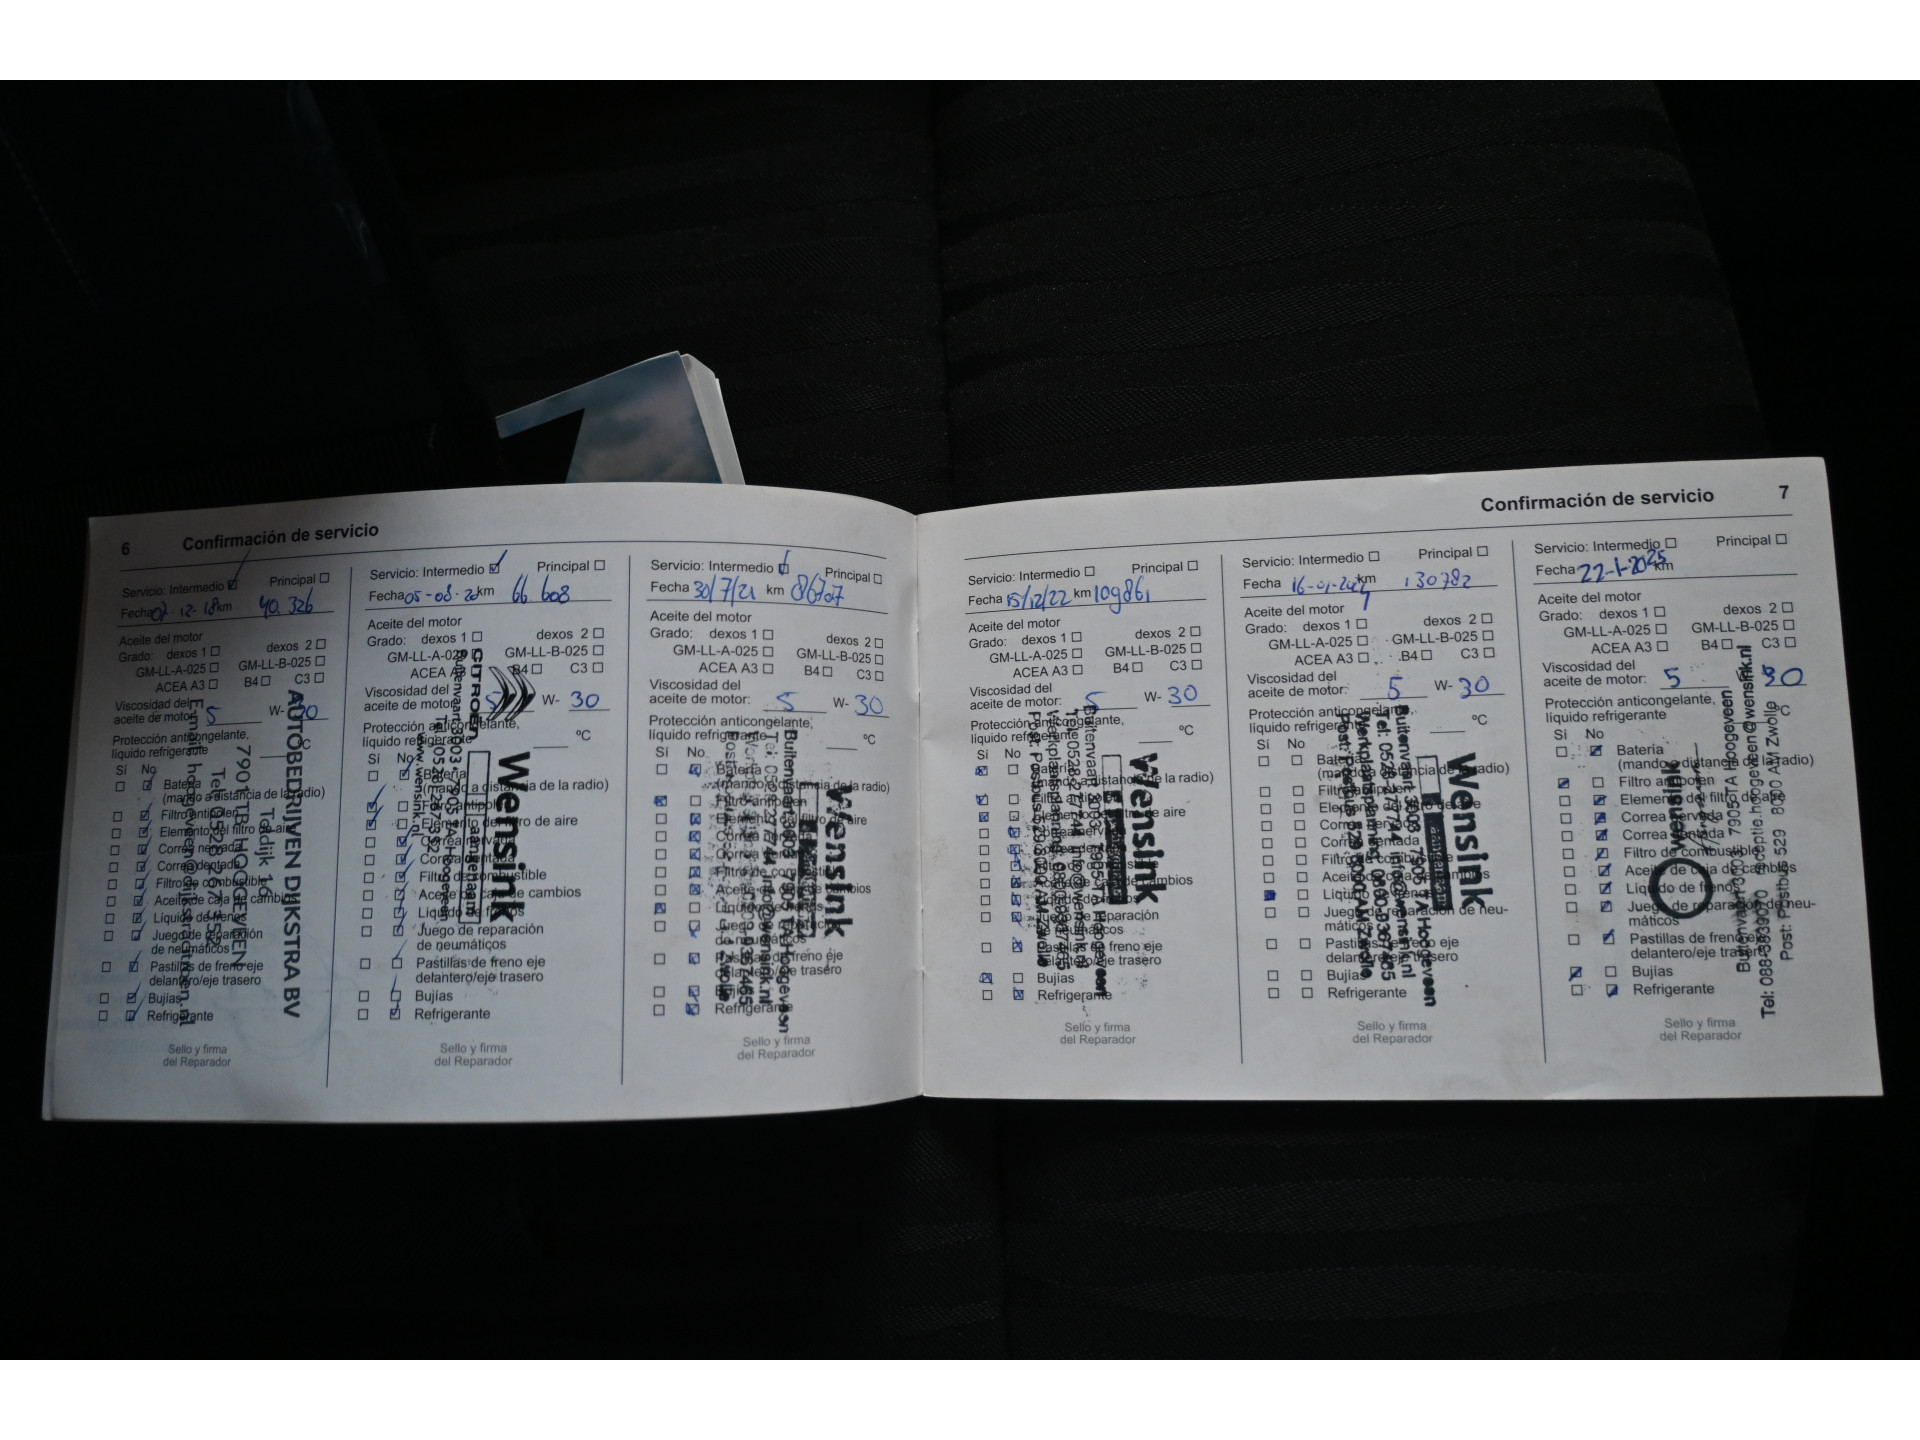 6 Confirmación de servicio
Servicio: Intermedio Principal
Fecha 07-12-18 km 40.326
Aceite del motor
Grado: dexos 1 dexos 2
GM-LL-A-025 GM-LL-B-025
ACEA A3 B4 C3
Viscosidad del
aceite de motor: 5 W- 30
Protección anticongelante,
líquido refrigerante °C
Sí No
Batería
(mando a distancia de la radio)
Filtro antipolen
Elemento del filtro de aire
Correa nervada
Correa dentada
Filtro de combustible
Aceite de caja de cambios
Líquido de frenos
Juego de reparación
de neumáticos
Pastillas de freno eje
delantero/eje trasero
Bujías
Refrigerante
AUTOBEDRIJVEN DIJKSTRA BV
Tedijk 16
7901 TB HOOGEVEEN
Sello y firma
del Reparador
Servicio: Intermedio Principal
Fecha 05-08-20 km 66 608
Aceite del motor
Grado: dexos 1 dexos 2
GM-LL-A-025 GM-LL-B-025
ACEA A3 B4 C3
Viscosidad del
aceite de motor: 5 W- 30
Protección anticongelante,
líquido refrigerante °C
Sí No
Batería
(mando a distancia de la radio)
Filtro antipolen
Elemento del filtro de aire
Correa nervada
Correa dentada
Filtro de combustible
Aceite de caja de cambios
Líquido de frenos
Juego de reparación
de neumáticos
Pastillas de freno eje
delantero/eje trasero
Bujías
Refrigerante
Wensink
CITROEN
www.wensink.nl
Sello y firma
del Reparador
Servicio: Intermedio Principal
Fecha 30/7/21 km
Aceite del motor
Grado: dexos 1 dexos 2
GM-LL-A-025 GM-LL-B-025
ACEA A3 B4 C3
Viscosidad del
aceite de motor: 5 W- 30
Protección anticongelante,
líquido refrigerante °C
Sí No
Batería
(mando a distancia de la radio)
Filtro antipolen
Elemento del filtro de aire
Correa nervada
Correa dentada
Filtro de combustible
Aceite de caja de cambios
Líquido de frenos
Juego de reparación
de neumáticos
Pastillas de freno eje
delantero/eje trasero
Bujías
Refrigerante
Wensink
Sello y firma
del Reparador
Confirmación de servicio 7
Servicio: Intermedio Principal
Fecha 15/12/22 km 109861
Aceite del motor
Grado: dexos 1 dexos 2
GM-LL-A-025 GM-LL-B-025
ACEA A3 B4 C3
Viscosidad del
aceite de motor: 5 W- 30
Protección anticongelante,
líquido refrigerante °C
Sí No
Batería
(mando a distancia de la radio)
Filtro antipolen
Elemento del filtro de aire
Correa nervada
Correa dentada
Filtro de combustible
Aceite de caja de cambios
Líquido de frenos
Juego de reparación
de neumáticos
Pastillas de freno eje
delantero/eje trasero
Bujías
Refrigerante
Wensink
Sello y firma
del Reparador
Servicio: Intermedio Principal
Fecha 16-01-2024 km 130782
Aceite del motor
Grado: dexos 1 dexos 2
GM-LL-A-025 GM-LL-B-025
ACEA A3 B4 C3
Viscosidad del
aceite de motor: 5 W- 30
Protección anticongelante,
líquido refrigerante °C
Sí No
Batería
(mando a distancia de la radio)
Filtro antipolen
Elemento del filtro de aire
Correa nervada
Correa dentada
Filtro de combustible
Aceite de caja de cambios
Líquido de frenos
Juego de reparación de neu-
máticos
Pastillas de freno eje
delantero/eje trasero
Bujías
Refrigerante
Wensink
Sello y firma
del Reparador
Servicio: Intermedio Principal
Fecha 22-1-2025 km
Aceite del motor
Grado: dexos 1 dexos 2
GM-LL-A-025 GM-LL-B-025
ACEA A3 B4 C3
Viscosidad del
aceite de motor: 5 W- 30
Protección anticongelante,
líquido refrigerante °C
Sí No
Batería
(mando a distancia de la radio)
Filtro antipolen
Elemento del filtro de aire
Correa nervada
Correa dentada
Filtro de combustible
Aceite de caja de cambios
Líquido de frenos
Juego de reparación de neu-
máticos
Pastillas de freno eje
delantero/eje trasero
Bujías
Refrigerante
wensink
Post: Postbus 529 8000 AM Zwolle
Sello y firma
del Reparador